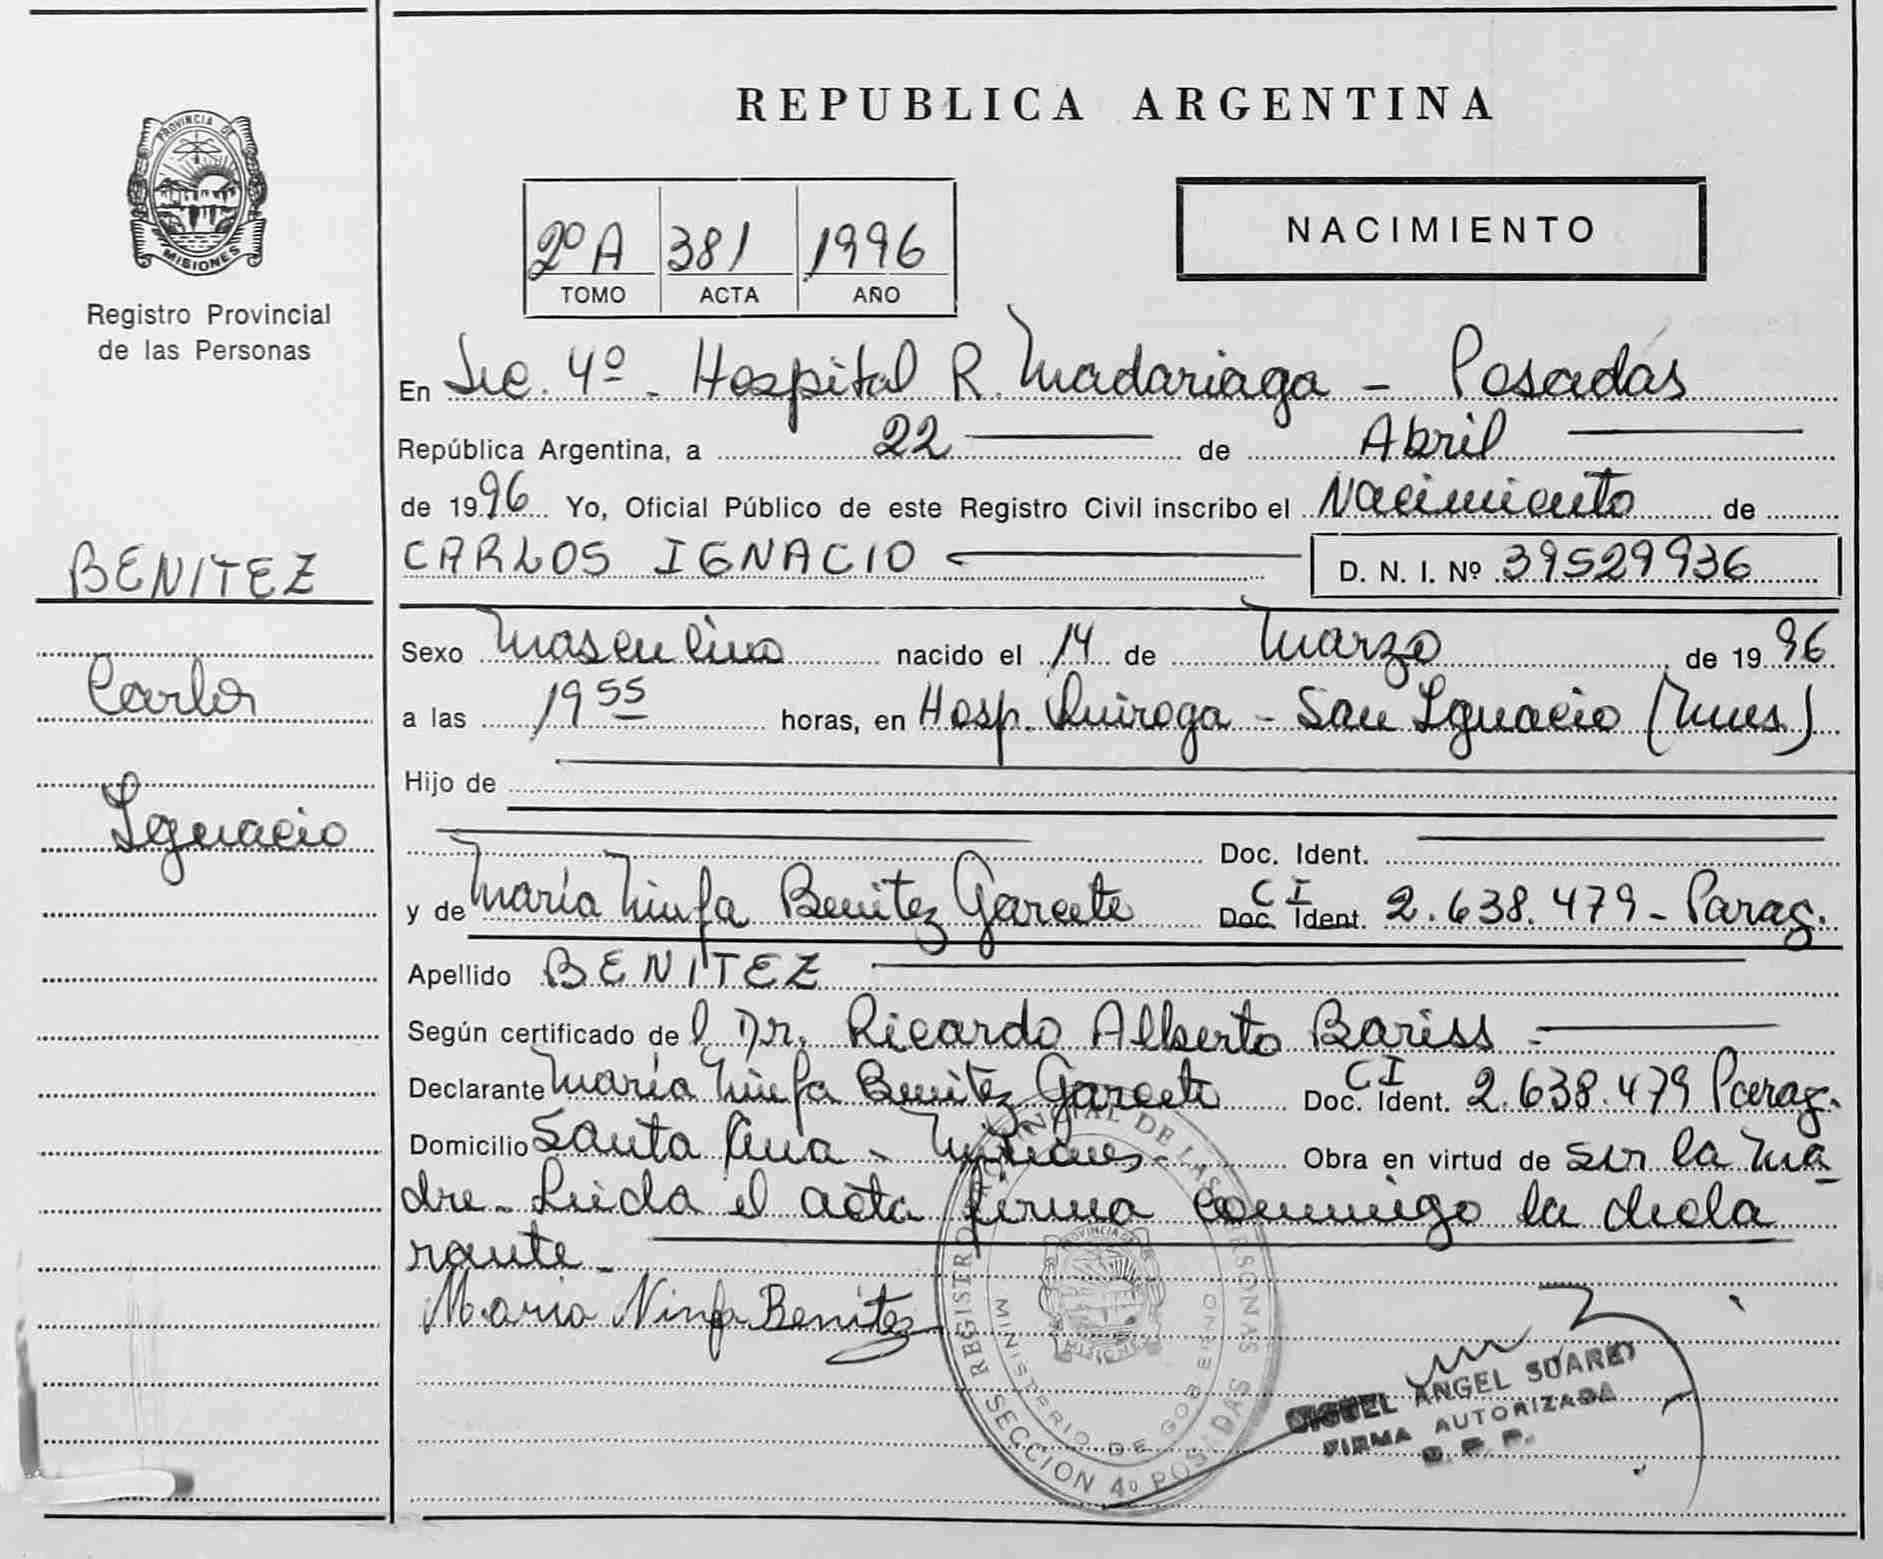 REPUBLICA ARGENTINA
PROVINCIA DE
MISIONES
Registro Provincial
de las Personas
2º A 381 1996
TOMO ACTA AÑO
NACIMIENTO
En Sec. 4º - Hospital R. Madariaga - Posadas
República Argentina, a 22 de Abril
de 1996 Yo, Oficial Público de este Registro Civil inscribo el Nacimiento de
CARLOS IGNACIO D. N. I. Nº 39529936
BENITEZ
Carlos
Ignacio
Sexo Masculino nacido el 14 de Marzo de 1996
a las 19 55 horas, en Hosp. Quiroga - San Ignacio (Mnes)
Hijo de
Doc. Ident.
y de María Ninfa Benitez Garcete CI Doc. Ident. 2.638.479 - Parag.
Apellido BENITEZ
Según certificado del Dr. Ricardo Alberto Bariss -
Declarante María Ninfa Benitez Garcete CI Doc. Ident. 2.638.479 Parag.
Domicilio Santa Ana - Misiones - Obra en virtud de ser la ma-
dre - Leida el acta firma conmigo la decla
rante -
Maria Ninfa Benitez
REGISTRO PROVINCIAL DE LAS PERSONAS
MINISTERIO DE GOBIERNO
SECCION 4º POSADAS
MIGUEL ANGEL SUAREZ
FIRMA AUTORIZADA